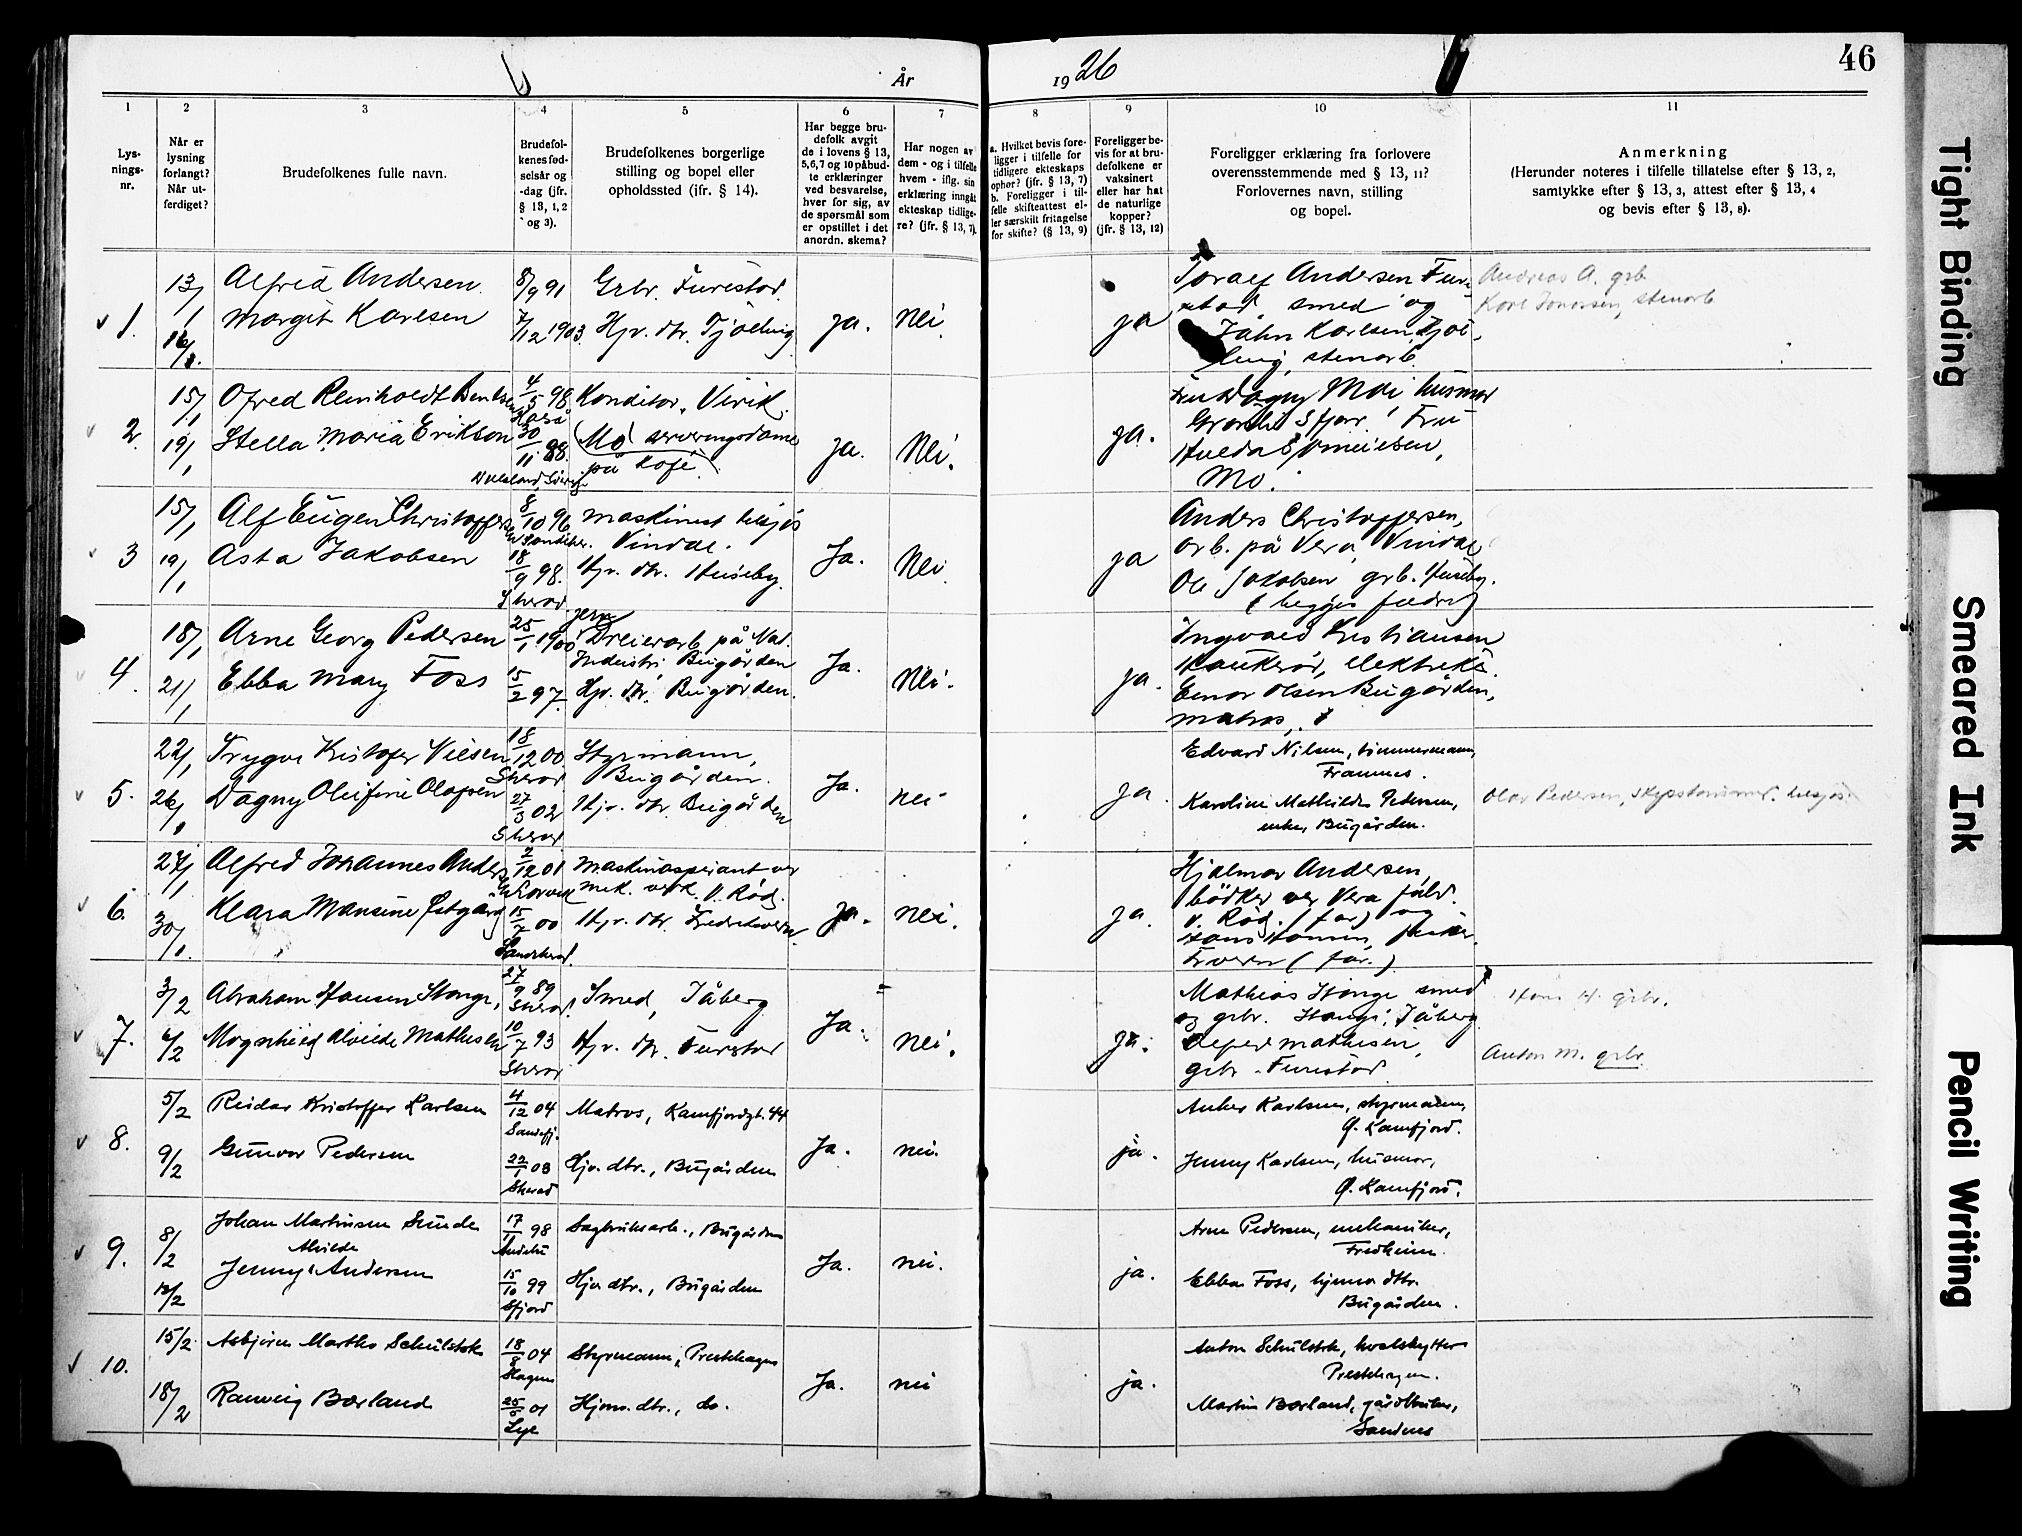 År 1926
46
1 2 3 4 5 6 7 8 9 10 11
Lys-
nings-
nr.
Når er
lysning
forlangt?
Når ut-
ferdiget?
Brudefolkenes fulle navn.
Brudefol-
kenes fød-
selsår og
-dag (jfr.
§ 13, 1, 2
og 3).
Brudefolkenes borgerlige
stilling og bopel eller
opholdssted (jfr. § 14).
Har begge bru-
defolk avgit
de i lovens § 13,
5,6,7 og 10 påbud-
te erklæringer
ved besvarelse,
hver for sig, av
de spørsmål som
er opstillet i det
anordn. skema?
Har nogen av
dem - og i tilfelle
hvem - iflg. sin
erklæring inngåt
ekteskap tidlige-
re? (jfr. § 13, 7).
a. Hvilket bevis fore-
ligger i tilfelle for
tidligere ekteskaps
ophør? (jfr. § 13, 7)
b. Foreligger i til-
felle skifteattest el-
ler særskilt fritagelse
for skifte? (§ 13, 9)
Foreligger be-
vis for at bru-
defolkene er
vaksinert
eller har hat
de naturlige
kopper?
(jfr. § 13, 12)
Foreligger erklæring fra forlovere
overensstemmende med § 13, 11?
Forlovernes navn, stilling
og bopel.
Anmerkning
(Herunder noteres i tilfelle tillatelse efter § 13, 2,
samtykke efter § 13, 3, attest efter § 13, 4
og bevis efter § 13, 8).
1.
13/1
16/1.
Alfred Andersen
Margit Karlsen
8/9 91
7/12 1903.
Grbr. Furustad
Hjv. dtr. Tjølling
ja.
Nei.
ja
Toralf Andersen Furu-
stad, smed og
John Karlsen, Tjøl-
ling, stenarb.
Andreas A. grb.
Karl Jonassen, stenarb
2
15/1
19/1
Ofred Reinholdt Bentsen
Stella Maria Erikson
4/5 98
30/11 88.
Konditor, Virik.
(Mo) serveringsdame
på kafé.
ja.
Nei.
ja.
Fru Dagny Moi husmor
Mo.
3
15/1
19/1
Alf Eugen Christoffersen
Asta Jakobsen
8/10 96
18/9 98.
Sherad
maskinist
Vindal.
Hjv. dtr. Huseby
Ja.
Nei
ja
Anders Christoffersen,
arb. på Vera, Vindal
Ole Jakobsen grb. Huseby.
(begges fædre)
4
18/1
21/1
Arne Georg Pedersen
Ebba Mary Foss
25/1 1900
15/2 97.
jern
Dreierarb. på Nat.
Industri Bugården
Hjv. dtr. Bugården.
Ja.
Nei.
ja.
Ingvald Kristiansen
elektriker.
Einar Olsen Bugården,
matros.
5.
22/1
26/1
Trygve Kristofer Nilsen
Dagny Olufine Olafsen
18/12 00
Sherad
27/3 02
Sherad
Styrmann,
Bugården.
Hjv. dtr. Bugården
Ja.
nei
ja.
Edvard Nilsen, tømmermann,
Framnes.
Karoline Mathilde Pedersen,
enke, Bugården.
Olav Pedersen, skipstømmerm. hvsjøs.
6.
27/1
30/1.
Alfred Johannes Anders
Klara Mansine Østgård
2/12 01
15/7 00
Sandeherad.
Maskinaspirant ved
mek. verk. v. Rød.
Hjv. dtr. Fredriksvern.
Ja.
nei.
ja.
Hjalmar Andersen,
bødker ved Vera fabr.
v. Rød. (far) og
Hans Hansen, fisker
Fr.vern (far.)
7.
3/2
6/2
Abraham Hansen Stange,
Magnhild Alvilde Mathisen
27/9 89
Sherad
10/7 93
Sherad
Smed, Jåberg
Hjv. dtr. Furustad
Ja.
nei.
ja.
Mathias Stange smed
og grbr. Stange, Jåberg
Mathisen,
grbr. Furustad.
Hans H. grbr.
Anton M. grbr.
8.
5/2
9/2
Reidar Kristoffer Karlsen
Gunvor Pedersen
4/12 04
Sandefj.
22/1 03
Sherad
Matros, Kamfjordgt. 44
Hjv. dtr., Bugården
Ja.
nei.
ja.
Anker Karlsen, styrmann,
Ø. Kamfjord.
Jenny Karlsen, husmor,
Ø. Kamfjord.
9.
8/2
12/2
Johan Martinsen Sunde
Alvilde
Jenny Andersen
17/11 98
Andebu
15/10 99
Sfjord
Sagbruksarb., Bugården
Hjv. dtr., Bugården
Ja.
nei.
ja.
Arne Pedersen, mekaniker,
Fredheim.
Ebba Foss, hjemmev. dtr.
Bugården.
10.
15/2
18/2
Asbjørn Martho Schulstok
Ranveig Bærland
18/8 04
Slagen
25/5 01
Lye
Styrmann, Prestehagen
Hjemv. dtr., do.
Ja.
nei
ja.
Anton Schulstok, hvalskytter
Prestehagen.
Martin Bærland, gårdbruker,
Sandnes
Tight Binding
Smeared Ink
Pencil Writing